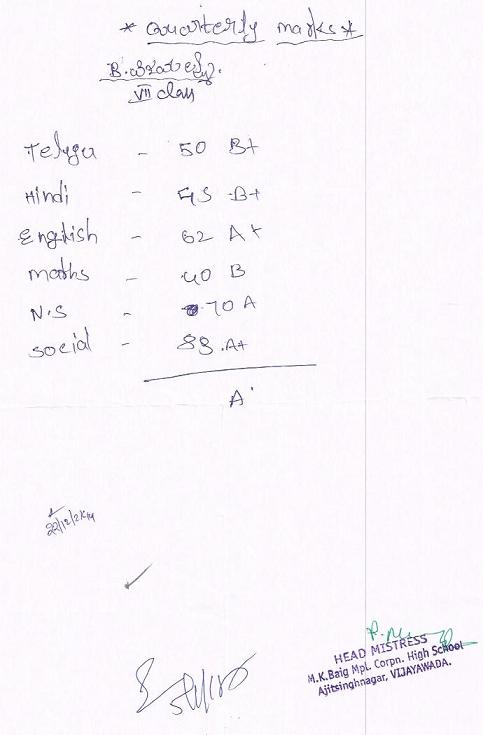 * Quarterly marks *
B.
VII class
Telugu - 50 B+
Hindi - 45 B+
English - 62 A+
maths - 40 B
N.S - 70 A
social - 88 .A+
A
22/12/2K14
HEAD MISTRESS
M.K.Baig Mpl. Corpn. High School
Ajitsinghnagar, VIJAYAWADA.